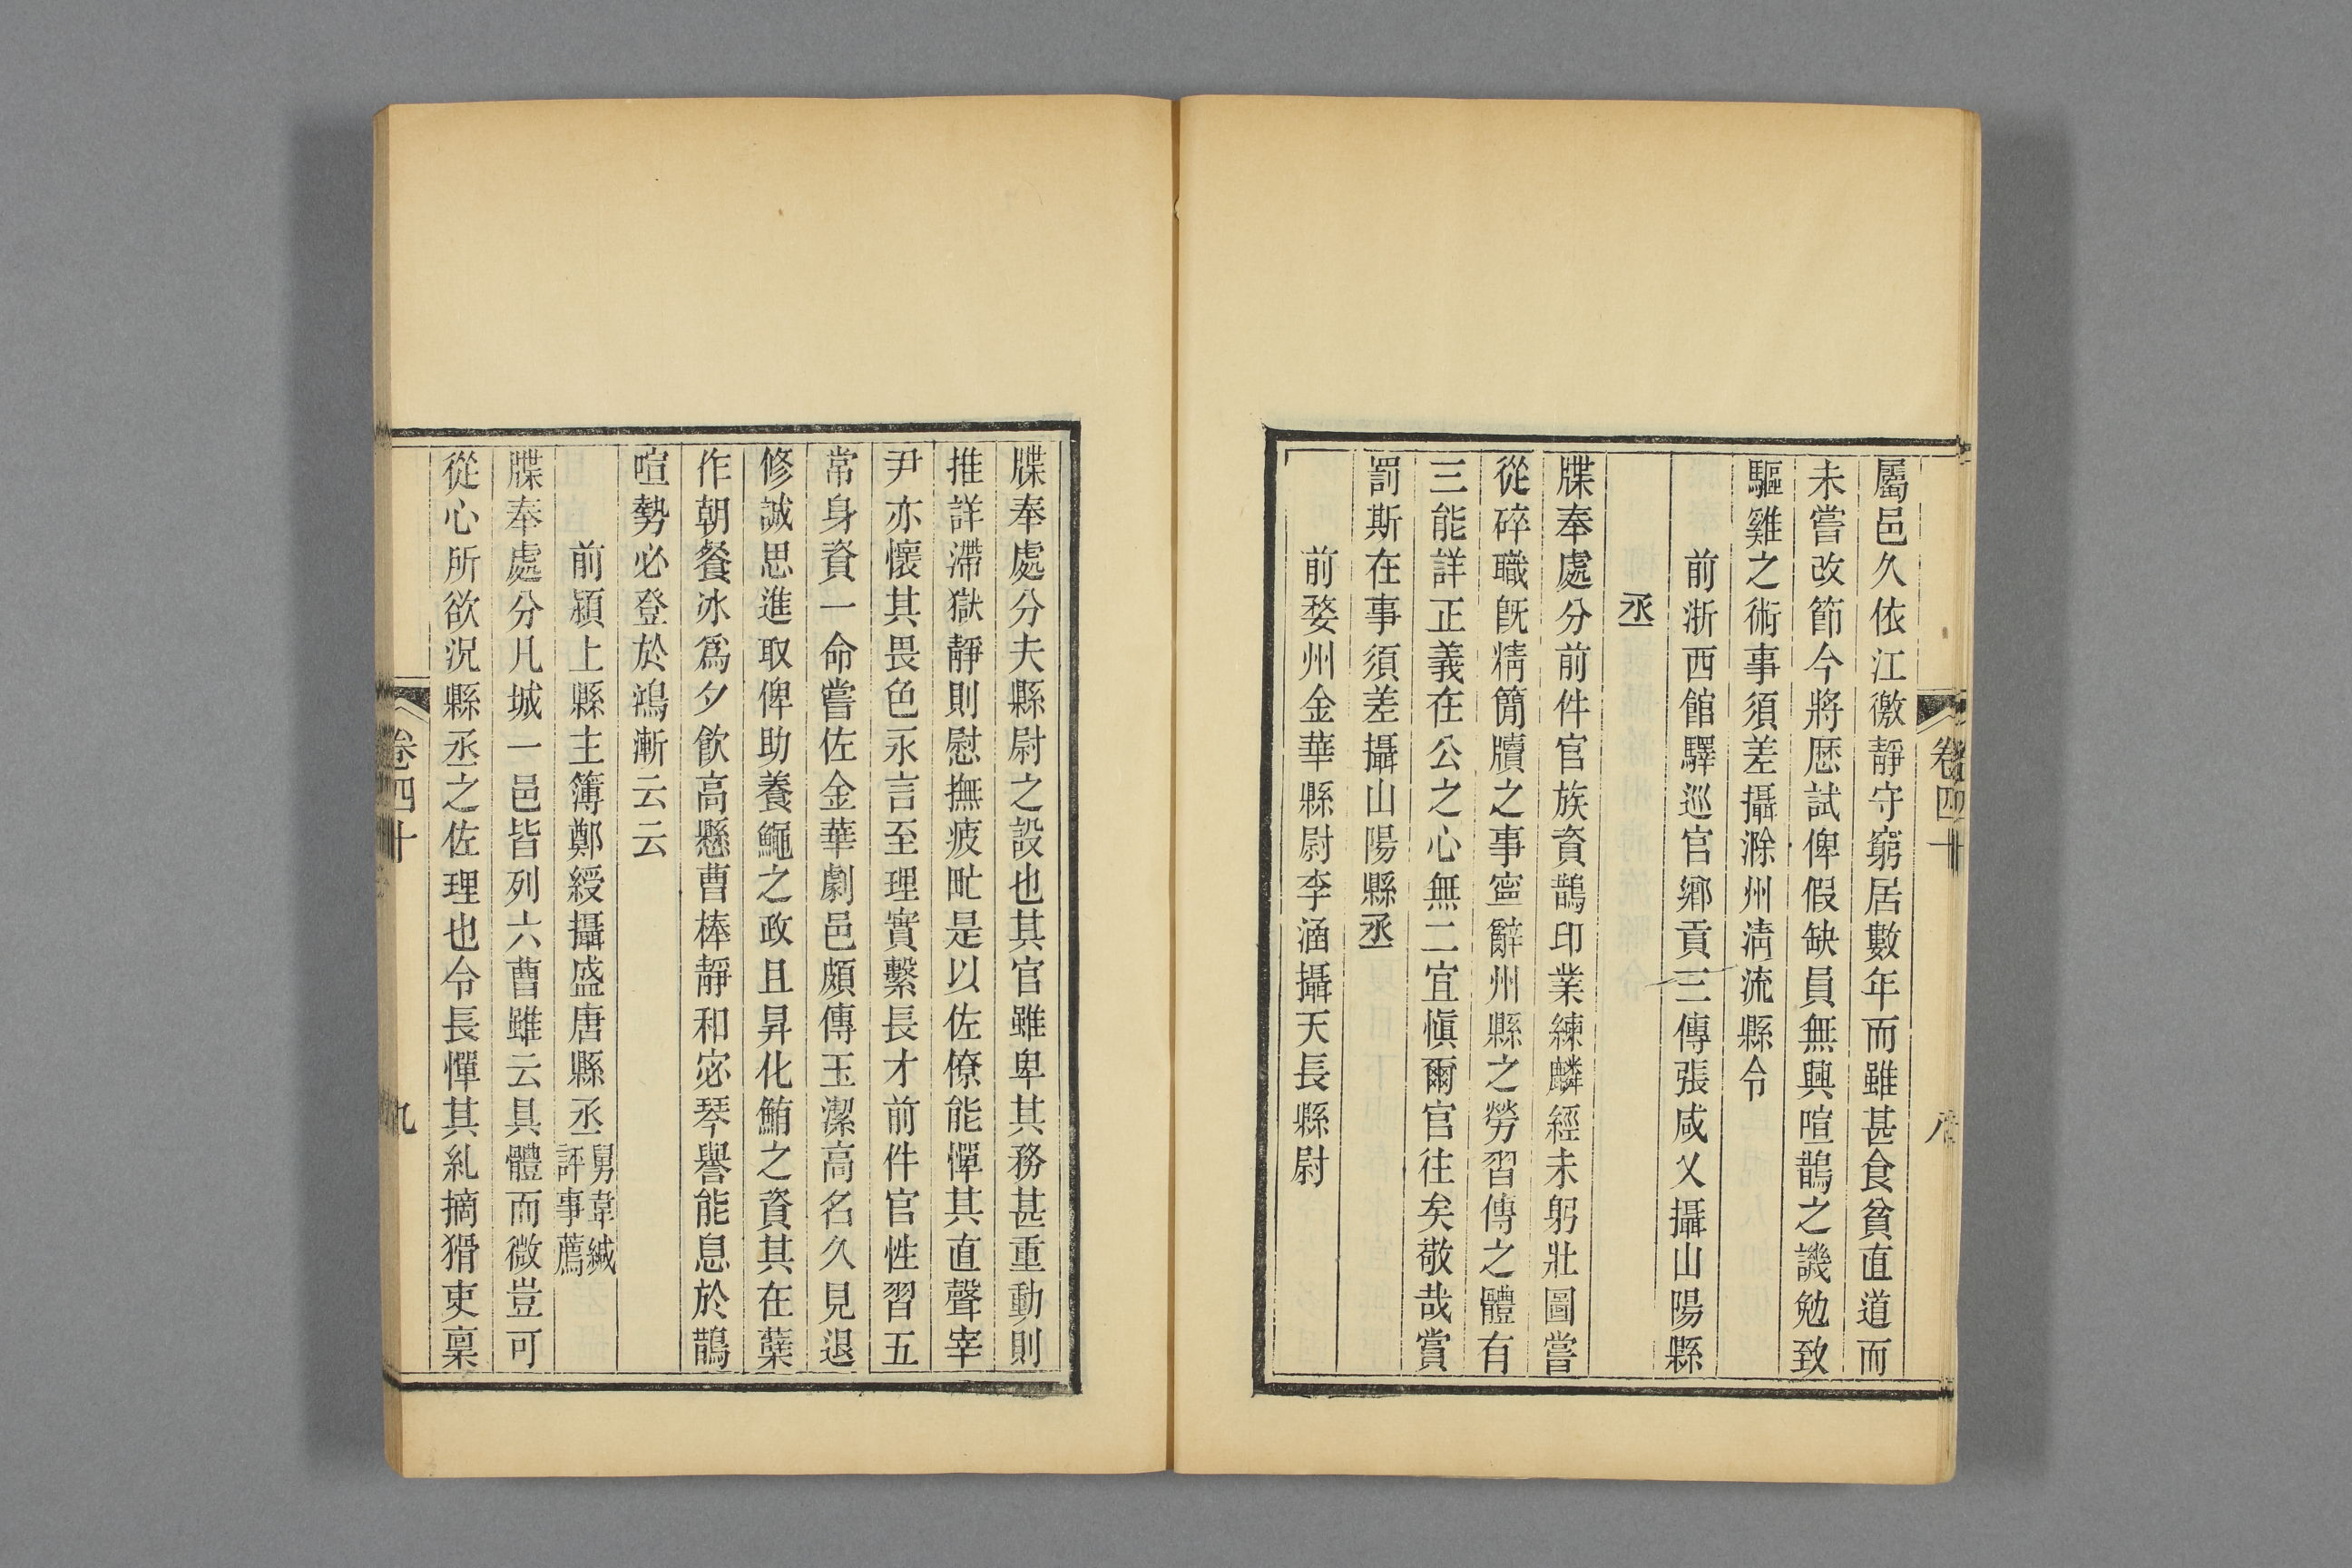 屬邑久依江徼靜守窮居數年而雖甚食貧直道而
未嘗改節今將歷試俾假缺員無興喧鵲之譏勉致
驅雞之術事須差攝滁州清流縣令
前浙西館驛巡官鄉貢三傳張咸乂攝山陽縣
丞
牒奉處分前件官族資鵲印業練麟經未躬壯圖嘗
從碎職旣精簡牘之事寧辭州縣之勞習傳之體有
三能詳正義在公之心無二宜愼爾官往矣敬哉賞
罰斯在事須差攝山陽縣丞
前婺州金華縣尉李涵攝天長縣尉
牒奉處分夫縣尉之設也其官雖卑其務甚重動則
推詳滯獄靜則慰撫疲甿是以佐僚能憚其直聲宰
尹亦懷其畏色永言至理實繫長才前件官性習五
常身資一命嘗佐金華劇邑頗傳玉潔高名久見退
修誠思進取俾助養鰮之政且昇化鮪之資其在蘖
作朝餐冰爲夕飮高懸曹棒靜和宓琴譽能息於鵲
喧勢必登於鴻漸云云
前潁上縣主簿鄭綬攝盛唐縣丞舅韋緘
評事薦
牒奉處分凡城一邑皆列六曹雖云具體而微豈可
從心所欲況縣丞之佐理也令長憚其糺摘猾吏稟
卷四十
九
卷四十